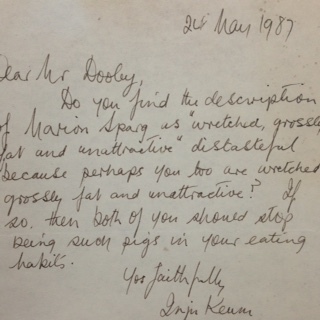 21st May 1987
Dear Mr Dooley,
Do you find the description
of Marion Sparg as "wretched, grossly
fat and unattractive" distasteful
because perhaps you too are wretched
grossly fat and unattractive? If
so, then both of you should stop
being such pigs in your eating
habits.
Yos faithfully,